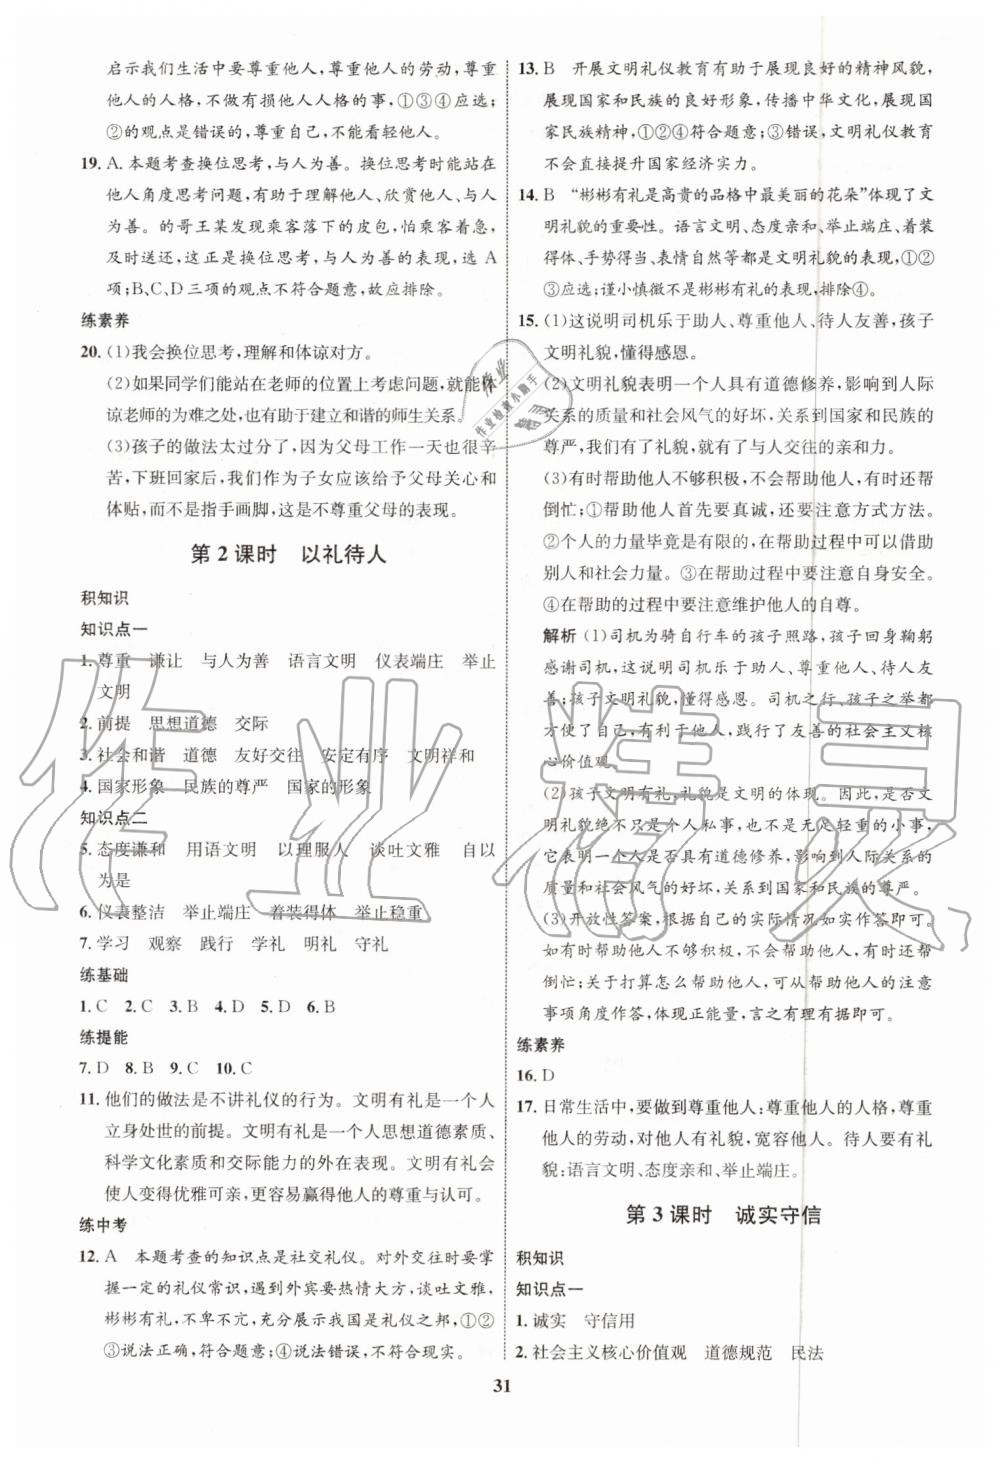 启示我们生活中要尊重他人,尊重他人的劳动,尊重
他人的人格,不做有损他人人格的事,①③④应选;
②的观点是错误的,尊重自己,不能看轻他人。
19. A. 本题考查换位思考,与人为善。换位思考时能站在
他人角度思考问题,有助于理解他人、欣赏他人、与人
为善。的哥王某发现乘客落下的皮包,怕乘客着急,
及时送还,这正是换位思考、与人为善的表现,选 A
项;B、C、D 三项的观点不符合题意,故应排除。
练素养
20. (1)我会换位思考,理解和体谅对方。
(2)如果同学们能站在老师的位置上考虑问题,就能体
谅老师的为难之处,也有助于建立和谐的师生关系。
(3)孩子的做法太过分了,因为父母工作一天也很辛
苦,下班回家后,我们作为子女应该给予父母关心和
体贴,而不是指手画脚,这是不尊重父母的表现。
第 2 课时 以礼待人
积知识
知识点一
1. 尊重 谦让 与人为善 语言文明 仪表端庄 举止
文明
2. 前提 思想道德 交际
3. 社会和谐 道德 友好交往 安定有序 文明祥和
4. 国家形象 民族的尊严 国家的形象
知识点二
5. 态度谦和 用语文明 以理服人 谈吐文雅 自以
为是
6. 仪表整洁 举止端庄 着装得体 举止稳重
7. 学习 观察 践行 学礼 明礼 守礼
练基础
1. C 2. C 3. B 4. D 5. D 6. B
练提能
7. D 8. B 9. C 10. C
11. 他们的做法是不讲礼仪的行为。文明有礼是一个人
立身处世的前提。文明有礼是一个人思想道德素质、
科学文化素质和交际能力的外在表现。文明有礼会
使人变得优雅可亲,更容易赢得他人的尊重与认可。
练中考
12. A 本题考查的知识点是社交礼仪。对外交往时要掌
握一定的礼仪常识,遇到外宾要热情大方,谈吐文雅,
彬彬有礼,不卑不亢,充分展示我国是礼仪之邦,①②
③说法正确,符合题意;④说法错误,不符合现实。
13. B 开展文明礼仪教育有助于展现良好的精神风貌,
展现国家和民族的良好形象,传播中华文化,展现
国家民族精神,①②④符合题意;③错误,文明礼仪教育
不会直接提升国家经济实力。
14. B “彬彬有礼是高贵的品格中最美丽的花朵”体现了文
明礼貌的重要性。语言文明、态度亲和、举止端庄、着装
得体、手势得当、表情自然等都是文明有礼的体现,①②
③应选;谨小慎微不是彬彬有礼的表现,排除④。
15. (1)这说明司机乐于助人、尊重他人、待人友善,孩子
文明礼貌,懂得感恩。
(2)文明礼貌表明一个人具有道德修养,影响到人际
关系的质量和社会风气的好坏,关系到国家和民族的
尊严,我们有了礼貌,就有了与人交往的亲和力。
(3)有时帮助他人不够积极,不会帮助他人,有时还帮
倒忙;①帮助他人首先要真诚,还要注意方式方法。
②个人的力量毕竟是有限的,在帮助过程中可以借助
别人和社会力量。③在帮助过程中要注意自身安全。
④在帮助的过程中要注意维护他人的自尊。
解析 (1)司机为骑自行车的孩子照路,孩子回身鞠躬
感谢司机,这说明司机乐于助人、尊重他人、待人友
善;孩子文明礼貌,懂得感恩。司机之行,孩子之举都
方便了自己,有利于他人,践行了友善的社会主义核
心价值观。
(2)孩子文明有礼,礼貌是文明的体现。因此,是否文
明礼貌绝不只是个人私事,也不是无足轻重的小事,
它表明一个人是否具有道德修养,影响到人际关系的
质量和社会风气的好坏,关系到国家和民族的尊严。
(3)开放性答案,根据自己的实际情况如实作答即可。
如有时帮助他人不够积极,不会帮助他人,有时还帮
倒忙;关于打算怎么帮助他人,可从帮助他人的注意
事项角度作答,体现正能量,言之有理有据即可。
练素养
16. D
17. 日常生活中,要做到尊重他人:尊重他人的人格,尊重
他人的劳动,对他人有礼貌,宽容他人。待人要有礼
貌:语言文明、态度亲和、举止端庄。
第 3 课时 诚实守信
积知识
知识点一
1. 诚实 守信用
2. 社会主义核心价值观 道德规范 民法
31
作业精灵